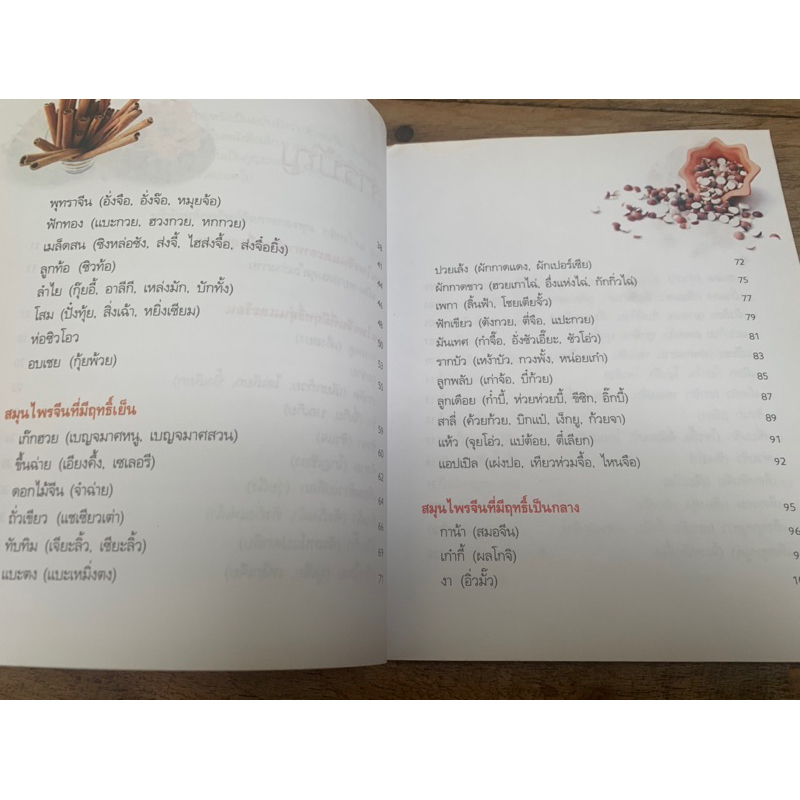 พุทราจีน (อั่งจือ, อั่งจ๊อ, หมุยจ้อ)
ฟักทอง (แบะกวย, ฮวงกวย, หกกวย)
เมล็ดสน (ซิงหล่อซัง, ส่งจี้, ไฮส่งจื้อ, ส่งจื่อยิ้ง)
ลูกท้อ (ชิวท้อ)
ลำไย (กุ๊ยอี้, อาลีกี, เหล่งมัก, บักทั้ง)
โสม (ปึ่งทุ้ย, สิ่งเฉ้า, หยิ่งเซียม)
ห่อซิวโอว
อบเชย (กุ้ยพ้วย) 50
สมุนไพรจีนที่มีฤทธิ์เย็น
เก๊กฮวย (เบญจมาศหนู, เบญจมาศสวน) 59
ขึ้นฉ่าย (เอียงคึ้ง, เซเลอรี) 60
ดอกไม้จีน (จำฉ่าย) 62
ถั่วเขียว (แชเซียวเต่า) 64
ทับทิม (เจียะลิ้ว, เซียะลิ้ว) 69
แบะตง (แบะเหมิ่งตง) 71
ปวยเล้ง (ผักกาดแดง, ผักเปอร์เซีย) 72
ผักกาดขาว (ฮวยเกาไฉ่, อึ่งแห่งไฉ่, กักกิ่วไฉ่) 75
เพกา (ลิ้นฟ้า, โชยเตียจั้ว) 77
ฟักเขียว (ตังกวย, ตี่จือ, แปะกวย) 79
มันเทศ (กำจื๊อ, อั่งซัวเอี๊ยะ, ซัวโอ่ว) 81
รากบัว (เหง้าบัว, กวงพั้ง, หน่อยเก๋า) 83
ลูกพลับ (เก่าจ้อ, บี๋ก้วย) 85
ลูกเดือย (ก่ำบี้, ห่วยห่วยบี้, ซีซิก, อิ๊กบี้) 87
สาลี่ (ด้วยก้วย, บิกแป๋, เง็กยู, ก้วยจา) 89
แห้ว (จุยโอ่ว, แบ่ต้อย, ตี่เลียก) 91
แอปเปิล (เผ่งปอ, เทียวห่วมจื้อ, ไหนจือ) 92
สมุนไพรจีนที่มีฤทธิ์เป็นกลาง 95
กาน้า (สมอจีน) 96
เก๋ากี้ (ผลโกจิ)
งา (อิ่วมั๊ว)